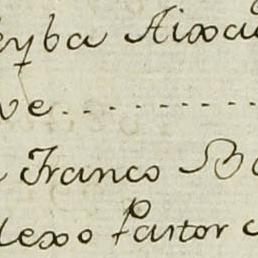 eyba Aixa
ve
Franco Ba
lexo Pastor